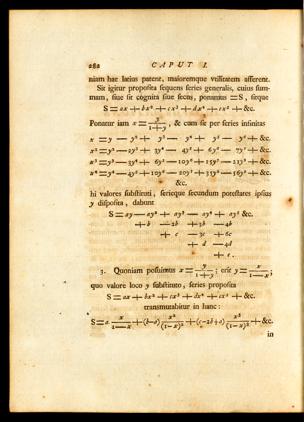 282 CAPUT I.
niam hae latius patent, maioremque vtilitatem afferent.
Sit igitur proposita sequens series generalis, cuius sum-
mam, siue sit cognita siue secus, ponamus = S, sitque
S = ax + bx² + cx³ + dx⁴ + ex⁵ + &c.
Ponatur iam x = y/(1+y), & cum sit per series infinitas
x = y — y² + y³ — y⁴ + y⁵ — y⁶ + &c.
x² = y² — 2y³ + 3y⁴ — 4y⁵ + 6y⁶ — 7y⁷ + &c.
x³ = y³ — 3y⁴ + 6y⁵ — 10y⁶ + 15y⁷ — 21y⁸ + &c.
x⁴ = y⁴ — 4y⁵ + 10y⁶ — 20y⁷ + 35y⁸ — 56y⁹ + &c.
&c.
hi valores substituti, serieque secundum potestates ipsius
y disposita, dabunt
S = ay — ay² + ay³ — ay⁴ + ay⁵ &c.
+ b — 2b + 3b — 4b
+ c — 3c + 6c
+ d — 4d
+ e .
3. Quoniam posuimus x = y/(1+y); erit y = x/(1—x);
quo valore loco y substituto, series proposita
S = ax + bx² + cx³ + dx⁴ + ex⁵ + &c.
transmutabitur in hanc:
S = a x/(1—x) + (b—a) x²/(1—x)² + (c—2b+a) x³/(1—x)³ + &c.
in